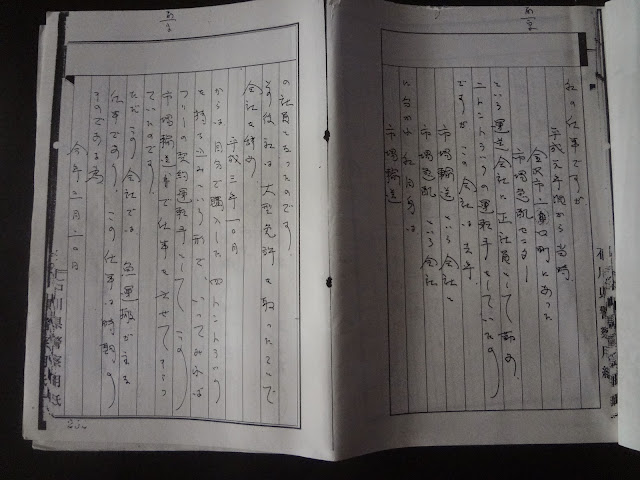 私の仕事ですが
平成元年頃から当時
金沢市 町にあった
市場急配センター
という運送会社に正社員として勤め、
二トントラックの運転手をしていたの
ですが、この会社は去年
市場輸送という会社と
市場急配という会社
に分かれ、私自身は
市場輸送
の社員となったのです。
その後私は大型免許を取ったことで
会社を辞め
平成三年一〇月
からは自分で購入した四トントラック
を持ち込みという形で、いってみれば
フリーの契約運転手として、この
市場輸送事で仕事をさせてもらっ
ていたのです。
ただこの会社では魚運搬が主な
仕事であり、この仕事は時期的
ものである為
今年二月一〇日